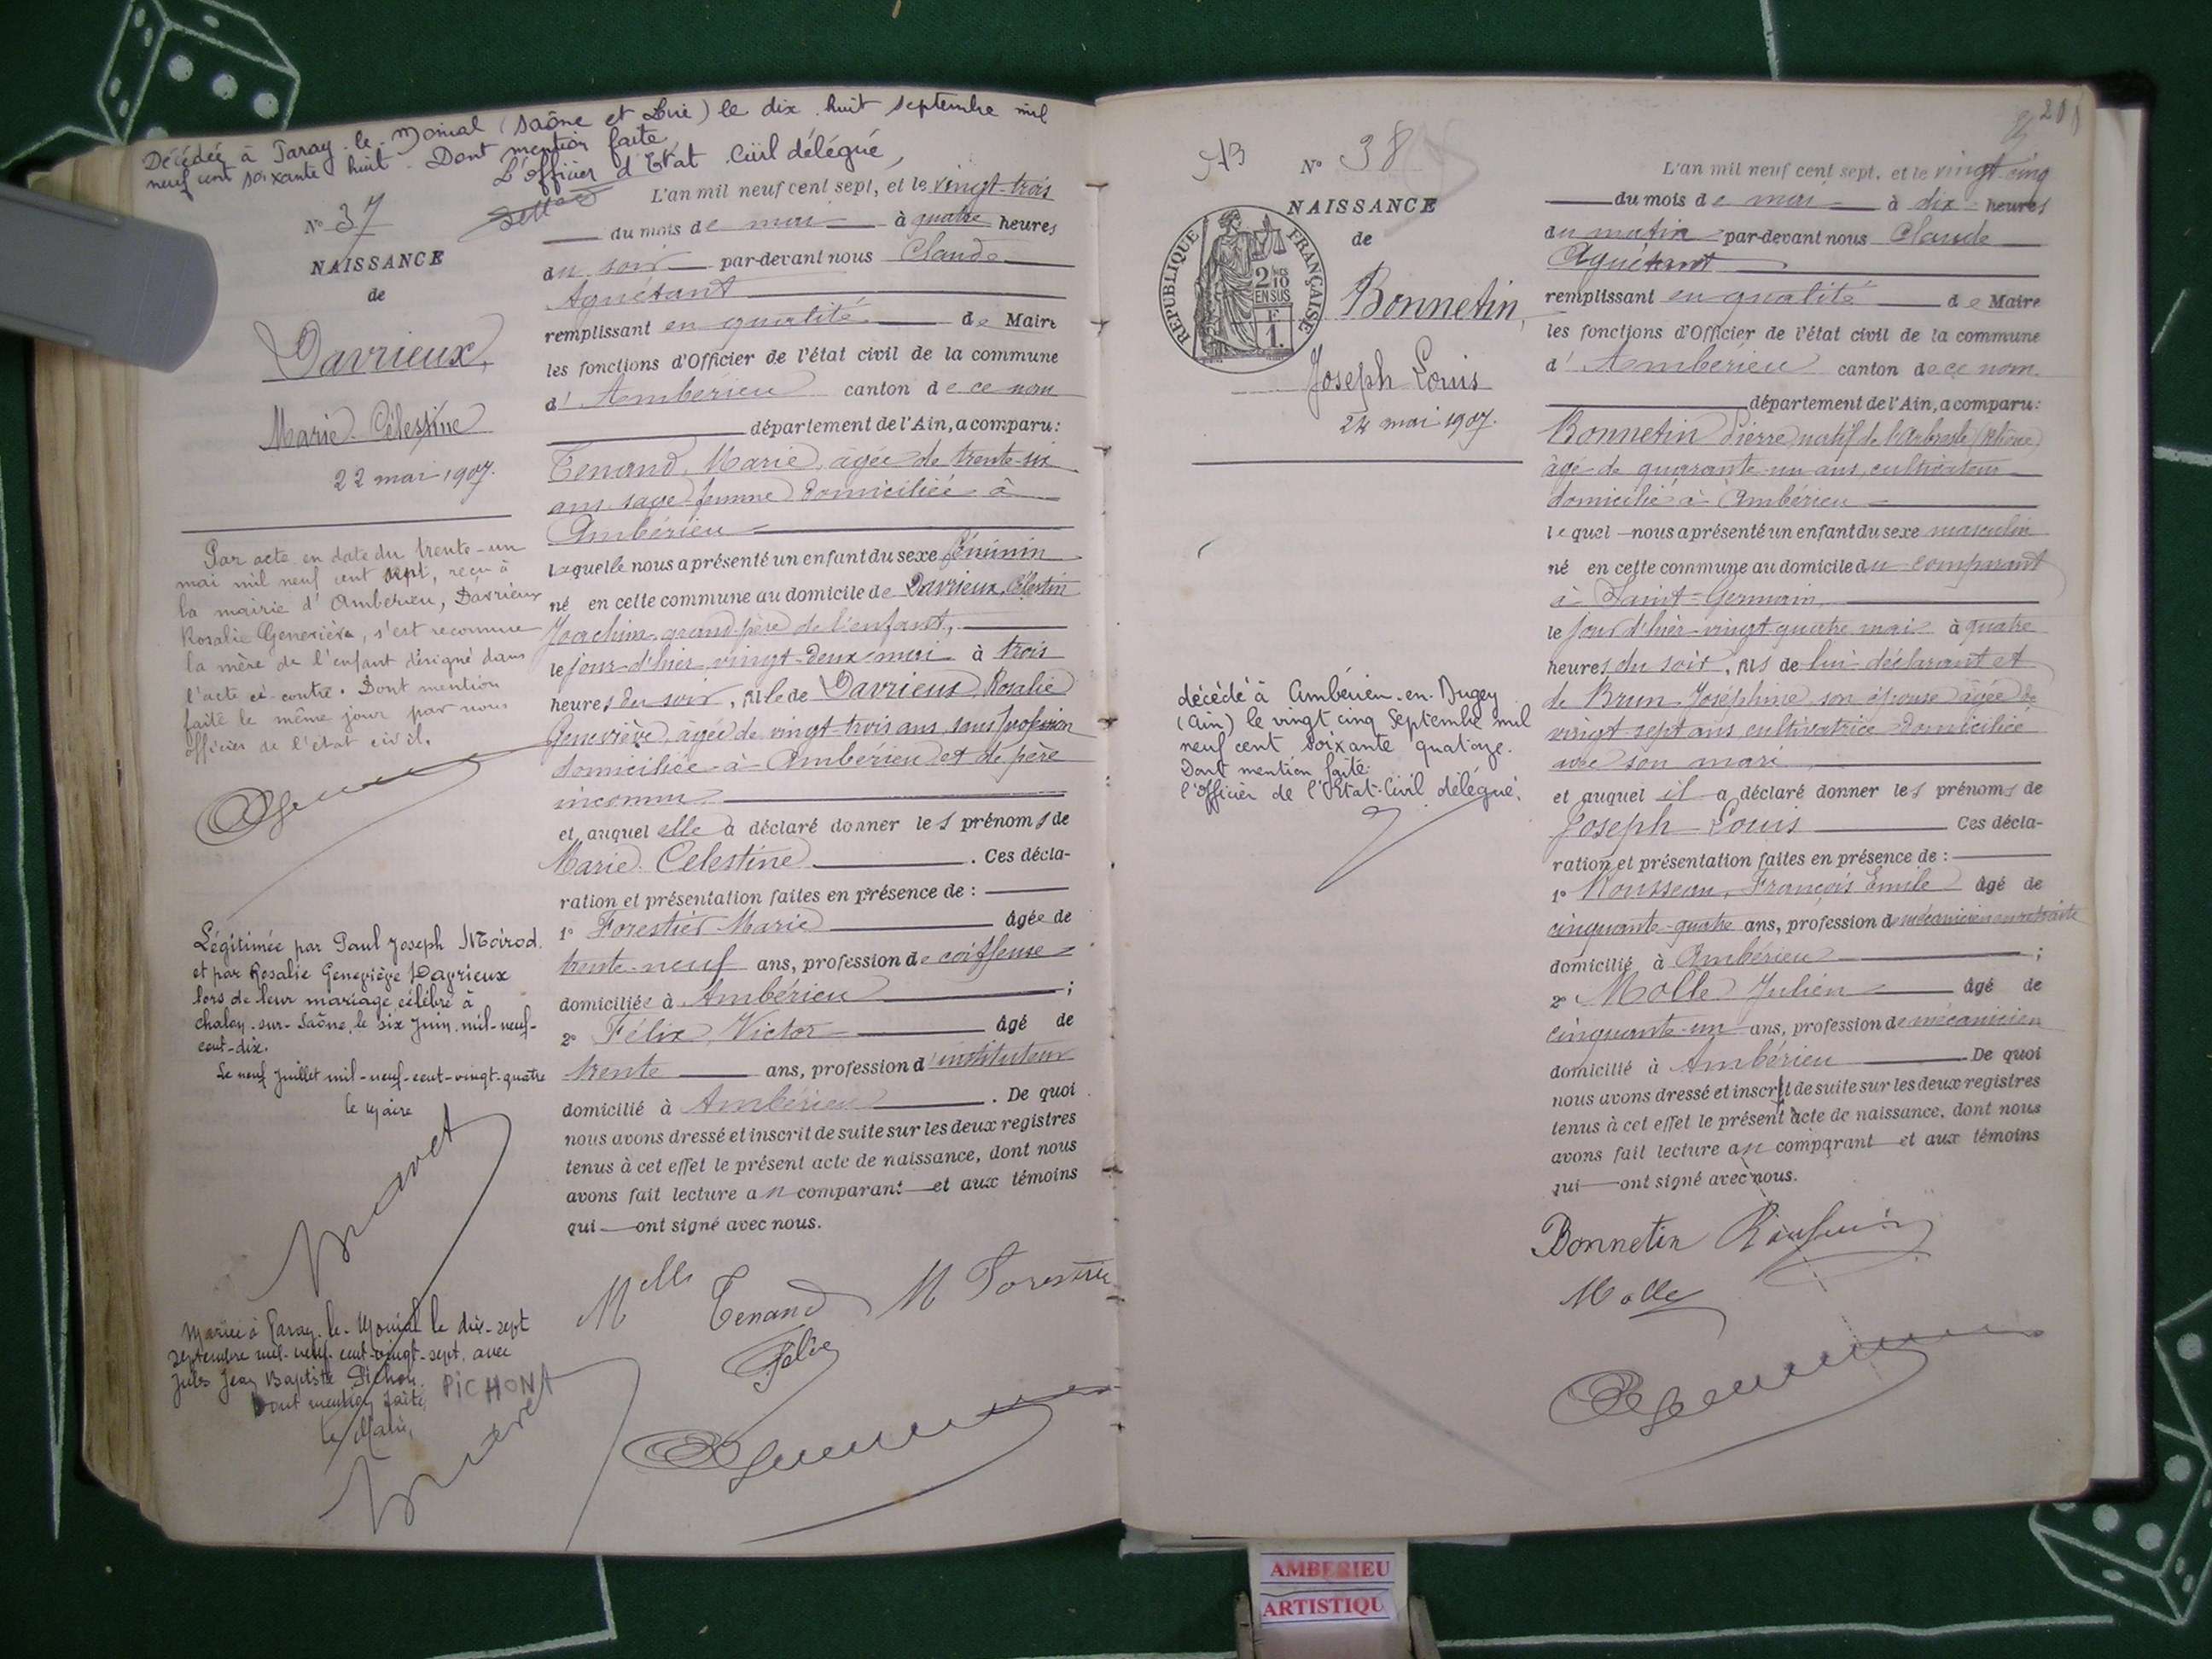 Décédée à Paray-le-Monial (Saône et Loire) le dix huit septembre mil
neuf cent soixante huit. Dont mention faite,
L'Officier d'Etat Civil délégué,
N° 37
NAISSANCE
de
Davrieux,
Marie Célestine
22 mai 1907.
Par acte en date du trente-un
mai mil neuf cent sept, reçu à
la mairie d'Ambérieu, Davrieux
Rosalie Geneviève, s'est reconnue
la mère de l'enfant désigné dans
l'acte ci-contre. Dont mention
faite le même jour par nous
officier de l'état civil.
Légitimée par Paul Joseph Moirod
et par Rosalie Geneviève Davrieux
lors de leur mariage célébré à
Chalon-sur-Saône, le six Juin mil-neuf-
cent-dix.
Le neuf Juillet mil-neuf-cent-vingt-quatre
le Maire
Mariée à Paray-le-Monial le dix-sept
septembre mil-neuf-cent-vingt-sept, avec
Jules Jean Baptiste Pichon.
PICHON
Dont mention faite,
Le Maire,
L'an mil neuf cent sept, et le vingt-trois
du mois de mai à quatre heures
du soir par-devant nous Claude
Aguétant
remplissant en qualité de Maire
les fonctions d'Officier de l'état civil de la commune
d' Ambérieu canton de ce nom
département de l'Ain, a comparu:
Tenand, Marie, âgée de trente-six
ans sage-femme domiciliée à
Ambérieu
laquelle nous a présenté un enfant du sexe féminin
né en cette commune au domicile de Davrieux, Célestin
Joachim, grand-père de l'enfant,
le jour d'hier vingt-deux mai à trois
heures du soir, fille de Davrieux Rosalie
Geneviève, âgée de vingt-trois ans, sans profession
domiciliée à Ambérieu et de père
inconnu
et auquel elle a déclaré donner les prénoms de
Marie Celestine. Ces décla-
ration et présentation faites en présence de :
1° Forestier Marie âgée de
trente-neuf ans, profession de coiffeuse
domiciliée à Ambérieu ;
2° Félix Victor âgé de
trente ans, profession d'instituteur
domicilié à Ambérieu. De quoi
nous avons dressé et inscrit de suite sur les deux registres
tenus à cet effet le présent acte de naissance, dont nous
avons fait lecture au comparant et aux témoins
qui ont signé avec nous.
Melle Tenand M Forestier
Félix
201
N° 38
NAISSANCE
de
RÉPUBLIQUE FRANÇAISE
2/10
EN SUS
F
1.
Bonnetin,
Joseph Louis
24 mai 1907.
décédé à Ambérieu-en-Bugey
(Ain) le vingt cinq Septembre mil
neuf cent soixante quatorze.
Dont mention faite.
l'Officier de l'Etat-Civil délégué.
L'an mil neuf cent sept, et le vingt-cinq
du mois de mai à dix heures
du matin par-devant nous Claude
Aguétant
remplissant en qualité de Maire
les fonctions d'Officier de l'état civil de la commune
d' Ambérieu canton de ce nom
département de l'Ain, a comparu:
Bonnetin Pierre natif de l'Arbresle (Rhône)
âgé de quarante-un ans, cultivateur
domicilié à Ambérieu
lequel nous a présenté un enfant du sexe masculin
né en cette commune au domicile du comparant
à Saint-Germain,
le jour d'hier vingt-quatre mai à quatre
heures du soir, fils de lui déclarant et
de Brun Joséphine son épouse âgée de
vingt-sept ans, cultivatrice domiciliée
avec son mari
et auquel il a déclaré donner les prénoms de
Joseph Louis Ces décla-
ration et présentation faites en présence de :
1° Rousseau, François Emile âgé de
cinquante-quatre ans, profession de mécanicien en retraite
domicilié à Ambérieu ;
2° Molle Julien âgé de
cinquante-un ans, profession de mécanicien
domicilié à Ambérieu De quoi
nous avons dressé et inscrit de suite sur les deux registres
tenus à cet effet le présent acte de naissance, dont nous
avons fait lecture au comparant et aux témoins
qui ont signé avec nous.
Bonnetin
Molle
AMBERIEU
ARTISTIQU